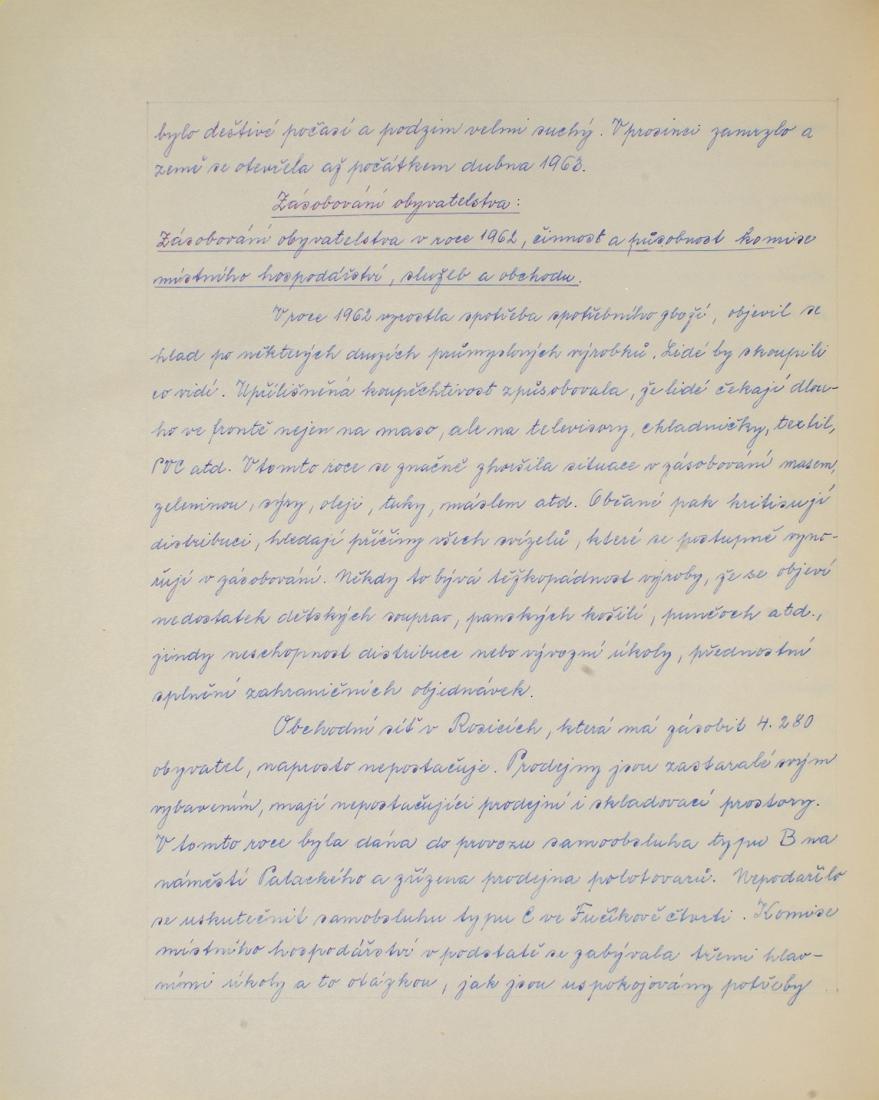 bylo deštivé počasí a podzim velmi suchý. V prosinci zamrzlo a
země se otevřela až počátkem dubna 1963.
Zásobování obyvatelstva:
Zásobování obyvatelstva v roce 1962, činnost a působnost komise
místního hospodářství, služeb a obchodu.
V roce 1962 vzrostla spotřeba spotřebního zboží, objevil se
hlad po některých druzích průmyslových výrobků. Lidé by skoupili
co vidí. Upřílišněná koupěchtivost způsobovala, že lidé čekají dlou-
ho ve frontě nejen na maso, ale na televisory, chladničky, textil,
PVC atd. V tomto roce se značně zhoršila situace v zásobování masem,
zeleninou, sýry, oleji, tuky, máslem atd. Občané pak kritisují
distribuci, hledají příčiny všech svízelů, které se postupně vyno-
řují v zásobování. Někdy to bývá těžkopádnost výroby, že se objeví
nedostatek dětských souprav, panských košilí, punčoch atd.,
jindy neschopnost distribuce nebo vývozní úkoly, přednostní
splnění zahraničních objednávek.
Obchodní síť v Rosicích, která má zásobit 4.280
obyvatel, naprosto nepostačuje. Prodejny jsou zastaralé svým
vybavením, mají nepostačující prodejní i skladovací prostory.
V tomto roce byla dána do provozu samoobsluha typu B na
náměstí Palackého a zřízena prodejna polotovarů. Nepodařilo
se uskutečnit samobsluhu typu C ve Fučíkově čtvrti. Komise
místního hospodářství v podstatě se zabývala třemi hlav-
ními úkoly a to otázkou, jak jsou uspokojovány potřeby